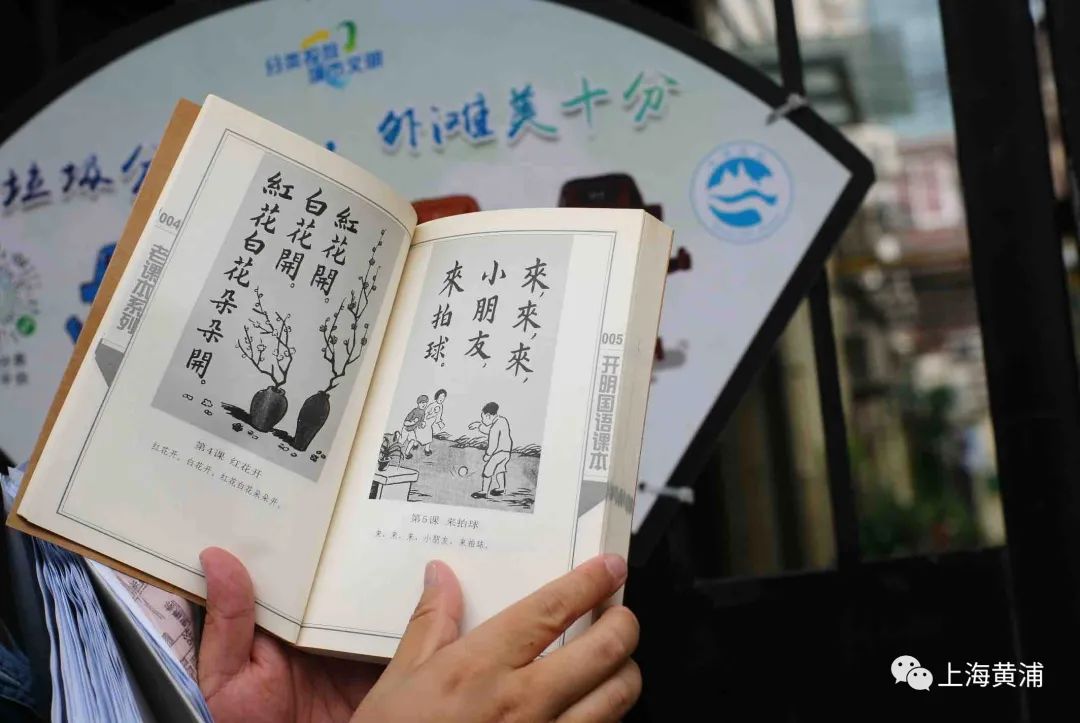 分类投放
城市文明
垃圾分
外滩美十分
004
老课本系列
紅花開。
白花開。
紅花白花朵朵開。
第4课 红花开
红花开，白花开，红花白花朵朵开。
005
开明国语课本
來，來，來，
小朋友，
來拍球。
第5课 来拍球
来，来，来，小朋友，来拍球。
上海黄浦